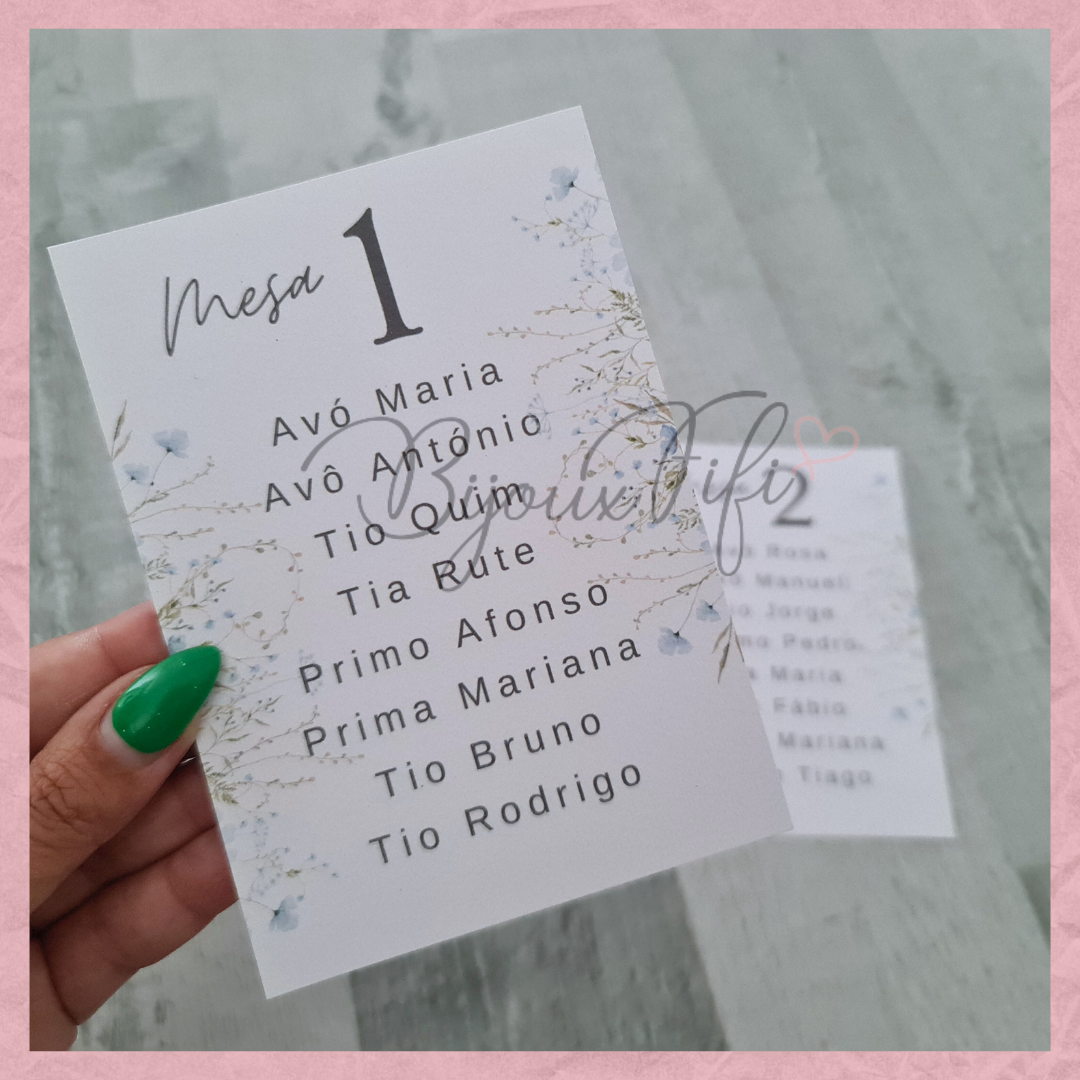 Mesa 1
Avó Maria
Avô António
Tio Quim
Tia Rute
Primo Afonso
Prima Mariana
Tio Bruno
Tio Rodrigo
BijouxFifi
2
Rosa
Manuel
Jorge
Pedro
Maria
Fábio
Mariana
Tiago